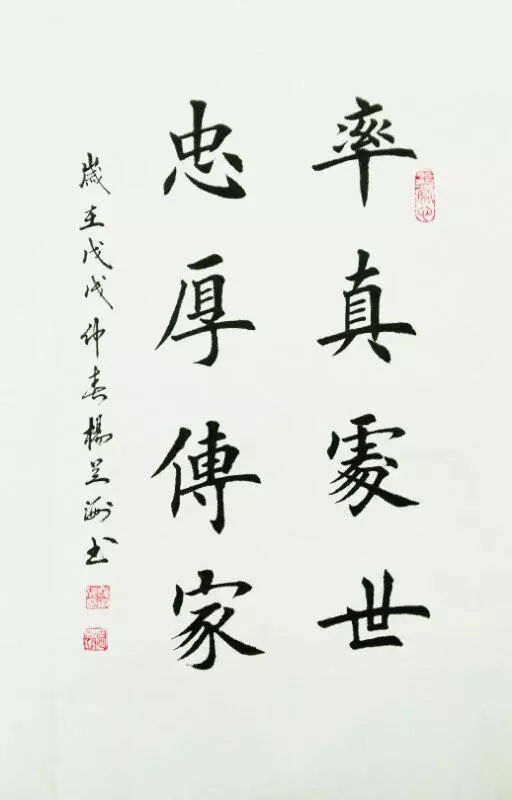 率真處世
忠厚傳家
歲在戊戌仲春楊兰洲书